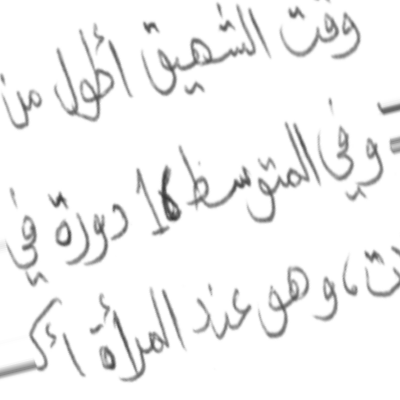 وقت الشهيق أطول من
وفي المتوسط 16 دورة في
ت، وهو عند المرأة أك